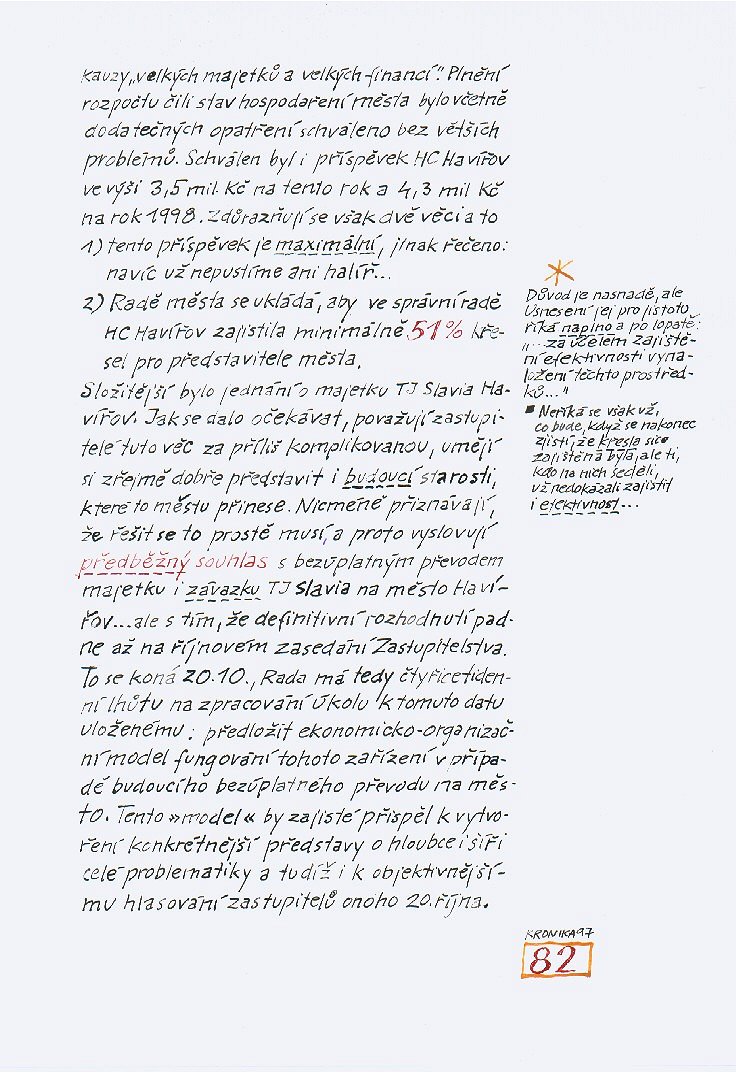 kauzy „velkých majetků a velkých financí“. Plnění
rozpočtu čili stav hospodaření města bylo včetně
dodatečných opatření schváleno bez větších
problémů. Schválen byl i příspěvek HC Havířov
ve výši 3,5 mil. Kč na tento rok a 4,3 mil Kč
na rok 1998. Zdůrazňují se však dvě věci a to
1) tento příspěvek je maximální, jinak řečeno:
navíc už nepustíme ani halíř...
2) Radě města se ukládá, aby ve správní radě
HC Havířov zajistila minimálně 51% kře-
sel pro představitele města.
Složitější bylo jednání o majetku TJ Slavia Ha-
vířov. Jak se dalo očekávat, považují zastupi-
telé tuto věc za příliš komplikovanou, umějí
si zřejmě dobře představit i budoucí starosti,
které to městu přinese. Nicméně přiznávají,
že řešit se to prostě musí, a proto vyslovují
předběžný souhlas s bezúplatným převodem
majetku i závazku TJ Slavia na město Haví-
řov... ale s tím, že definitivní rozhodnutí pad-
ne až na říjnovém zasedání Zastupitelstva.
To se koná 20.10., Rada má tedy čtyřicetiden-
ní lhůtu na zpracování úkolu k tomuto datu
uloženému: předložit ekonomicko-organizač-
ní model fungování tohoto zařízení v přípa-
dě budoucího bezúplatného převodu na měs-
to. Tento »model« by zajisté přispěl k vytvo-
ření konkrétnější představy o hloubce i šíři
celé problematiky a tudíž i k objektivnější-
mu hlasování zastupitelů onoho 20. října.
*
Důvod je nasnadě, ale
Usnesení jej pro jistotu
říká naplno a po lopatě:
„...za účelem zajiště-
ní efektivnosti vyna-
ložení těchto prostřed-
ků...“
▪ Neříká se však už,
co bude, když se nakonec
zjistí, že křesla sice
zajištěna byla, ale ti,
kdo na nich seděli,
už nedokázali zajistit
i efektivnost...
KRONIKA 97
82